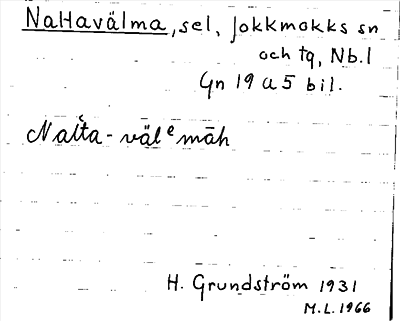 Nattavälma, sel, Jokkmokks sn
och tg, Nb.l
Gn 19 a 5 bil.
Nalťta-välᵉmāh
H. Grundström 1931
M.L. 1966